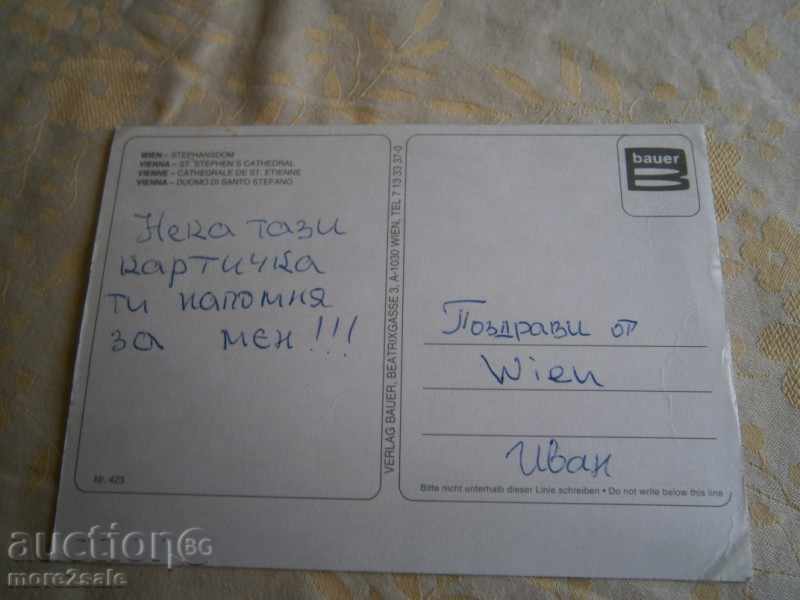 WIEN – STEPHANSDOM
VIENNA – ST. STEPHEN'S CATHEDRAL
VIENNE – CATHEDRALE DE ST. ETIENNE
VIENNA – DUOMO DI SANTO STEFANO
Нека тази
картичка
ти напомня
за мен!!!
Nr. 423
VERLAG BAUER, BEATRIXGASSE 3, A-1030 WIEN, TEL 7 13 33 37-0
bauer
Поздрави от
Wien
Иван
Bitte nicht unterhalb dieser Linie schreiben • Do not write below this line
auction BG
more2sale